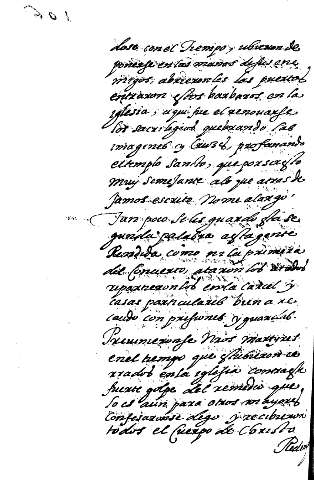 101
dose con el Tiempo, ubieron de
ponerse en las manos destos ene
migos, abrieronles las puertas
entraron estos barbaros en la
iglesia; aqui fue el renovarse
los sacrilegios quebrando las
imagenes y Cruses, profanando
el templo Santo, que por
muy semejante alo que atras de
jamos escrito No me alargo
Tan poco se les guardo esta se
gunda palabra a esta gente
Rendida, como ni la primera
del Concierto, ataron los
y pusieronlos en la carcel y
casas particulares bien a re
caudo con prisiones y guardas.
Previnieronse Nros martyres
en el tiempo que estubieron ce
rrados en la iglesia contra este
fuerte golpe del remedio que
lo es aun para otros mayores
Confesaronse luego y recibieron
todos el Cuerpo de Christo